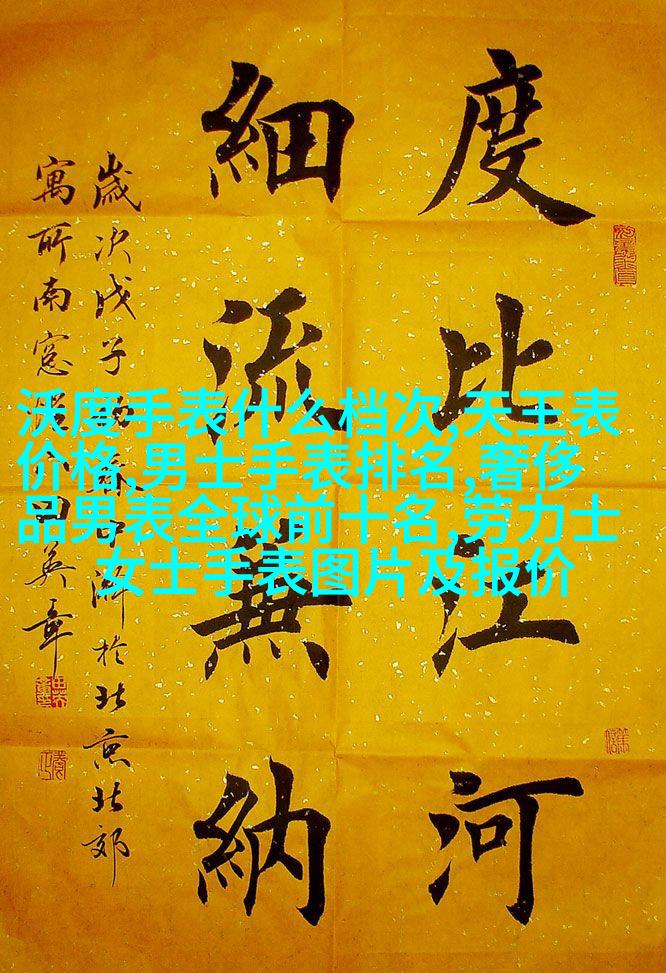 度比江河
細流兼納
歲次戊子春於北京北郊
寓所南窓田英章
沃度手表什么档次,天王表
价格,男士手表排名,奢侈
品男表全球前十名,劳力士
女士手表图片及报价